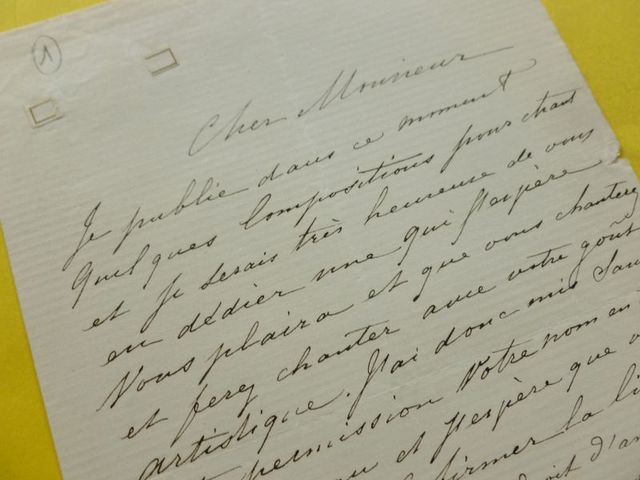 1
Cher Monsieur
Je publie dans ce moment
quelques Compositions pour chant
et je serais très heureuse de vous
en dédier une qui j'espère
Vous plaira et que vous chanterez
et ferez chanter avec votre goût
artistique. J'ai donc mis sans
permission Votre nom en
et j'espère que
confirmer la li
droit d'au